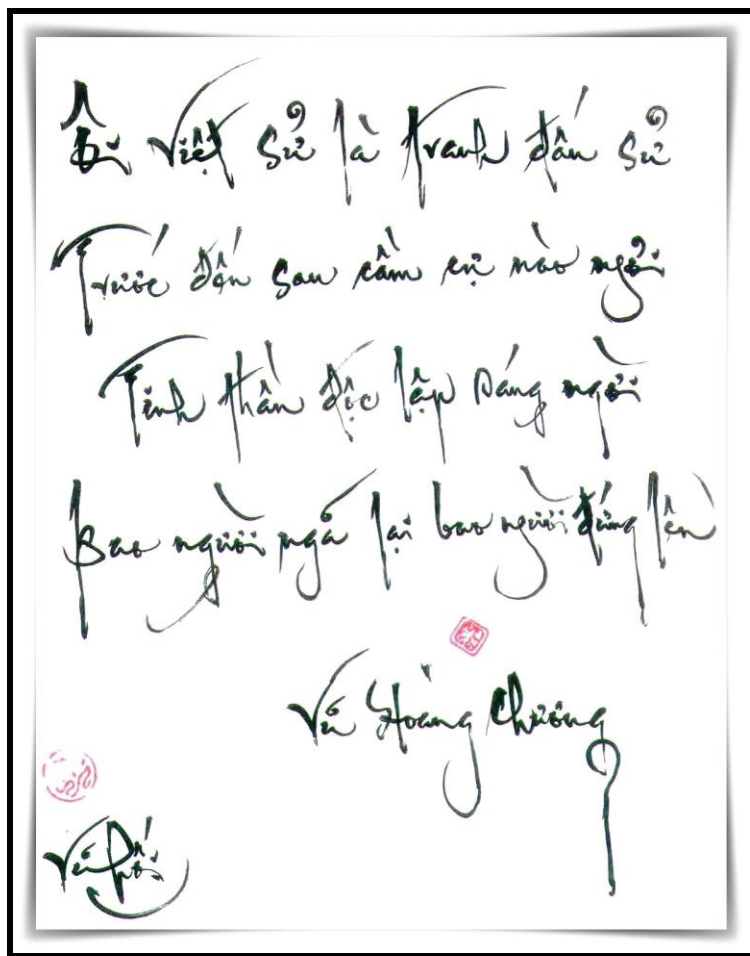 Ôi Việt sử là tranh đấu sử
Trước đến sau cầm cự nào ngơi
Tinh thần độc lập sáng ngời
Bao người ngã lại bao người đứng lên
Vũ Hoàng Chương
Vũ Hối